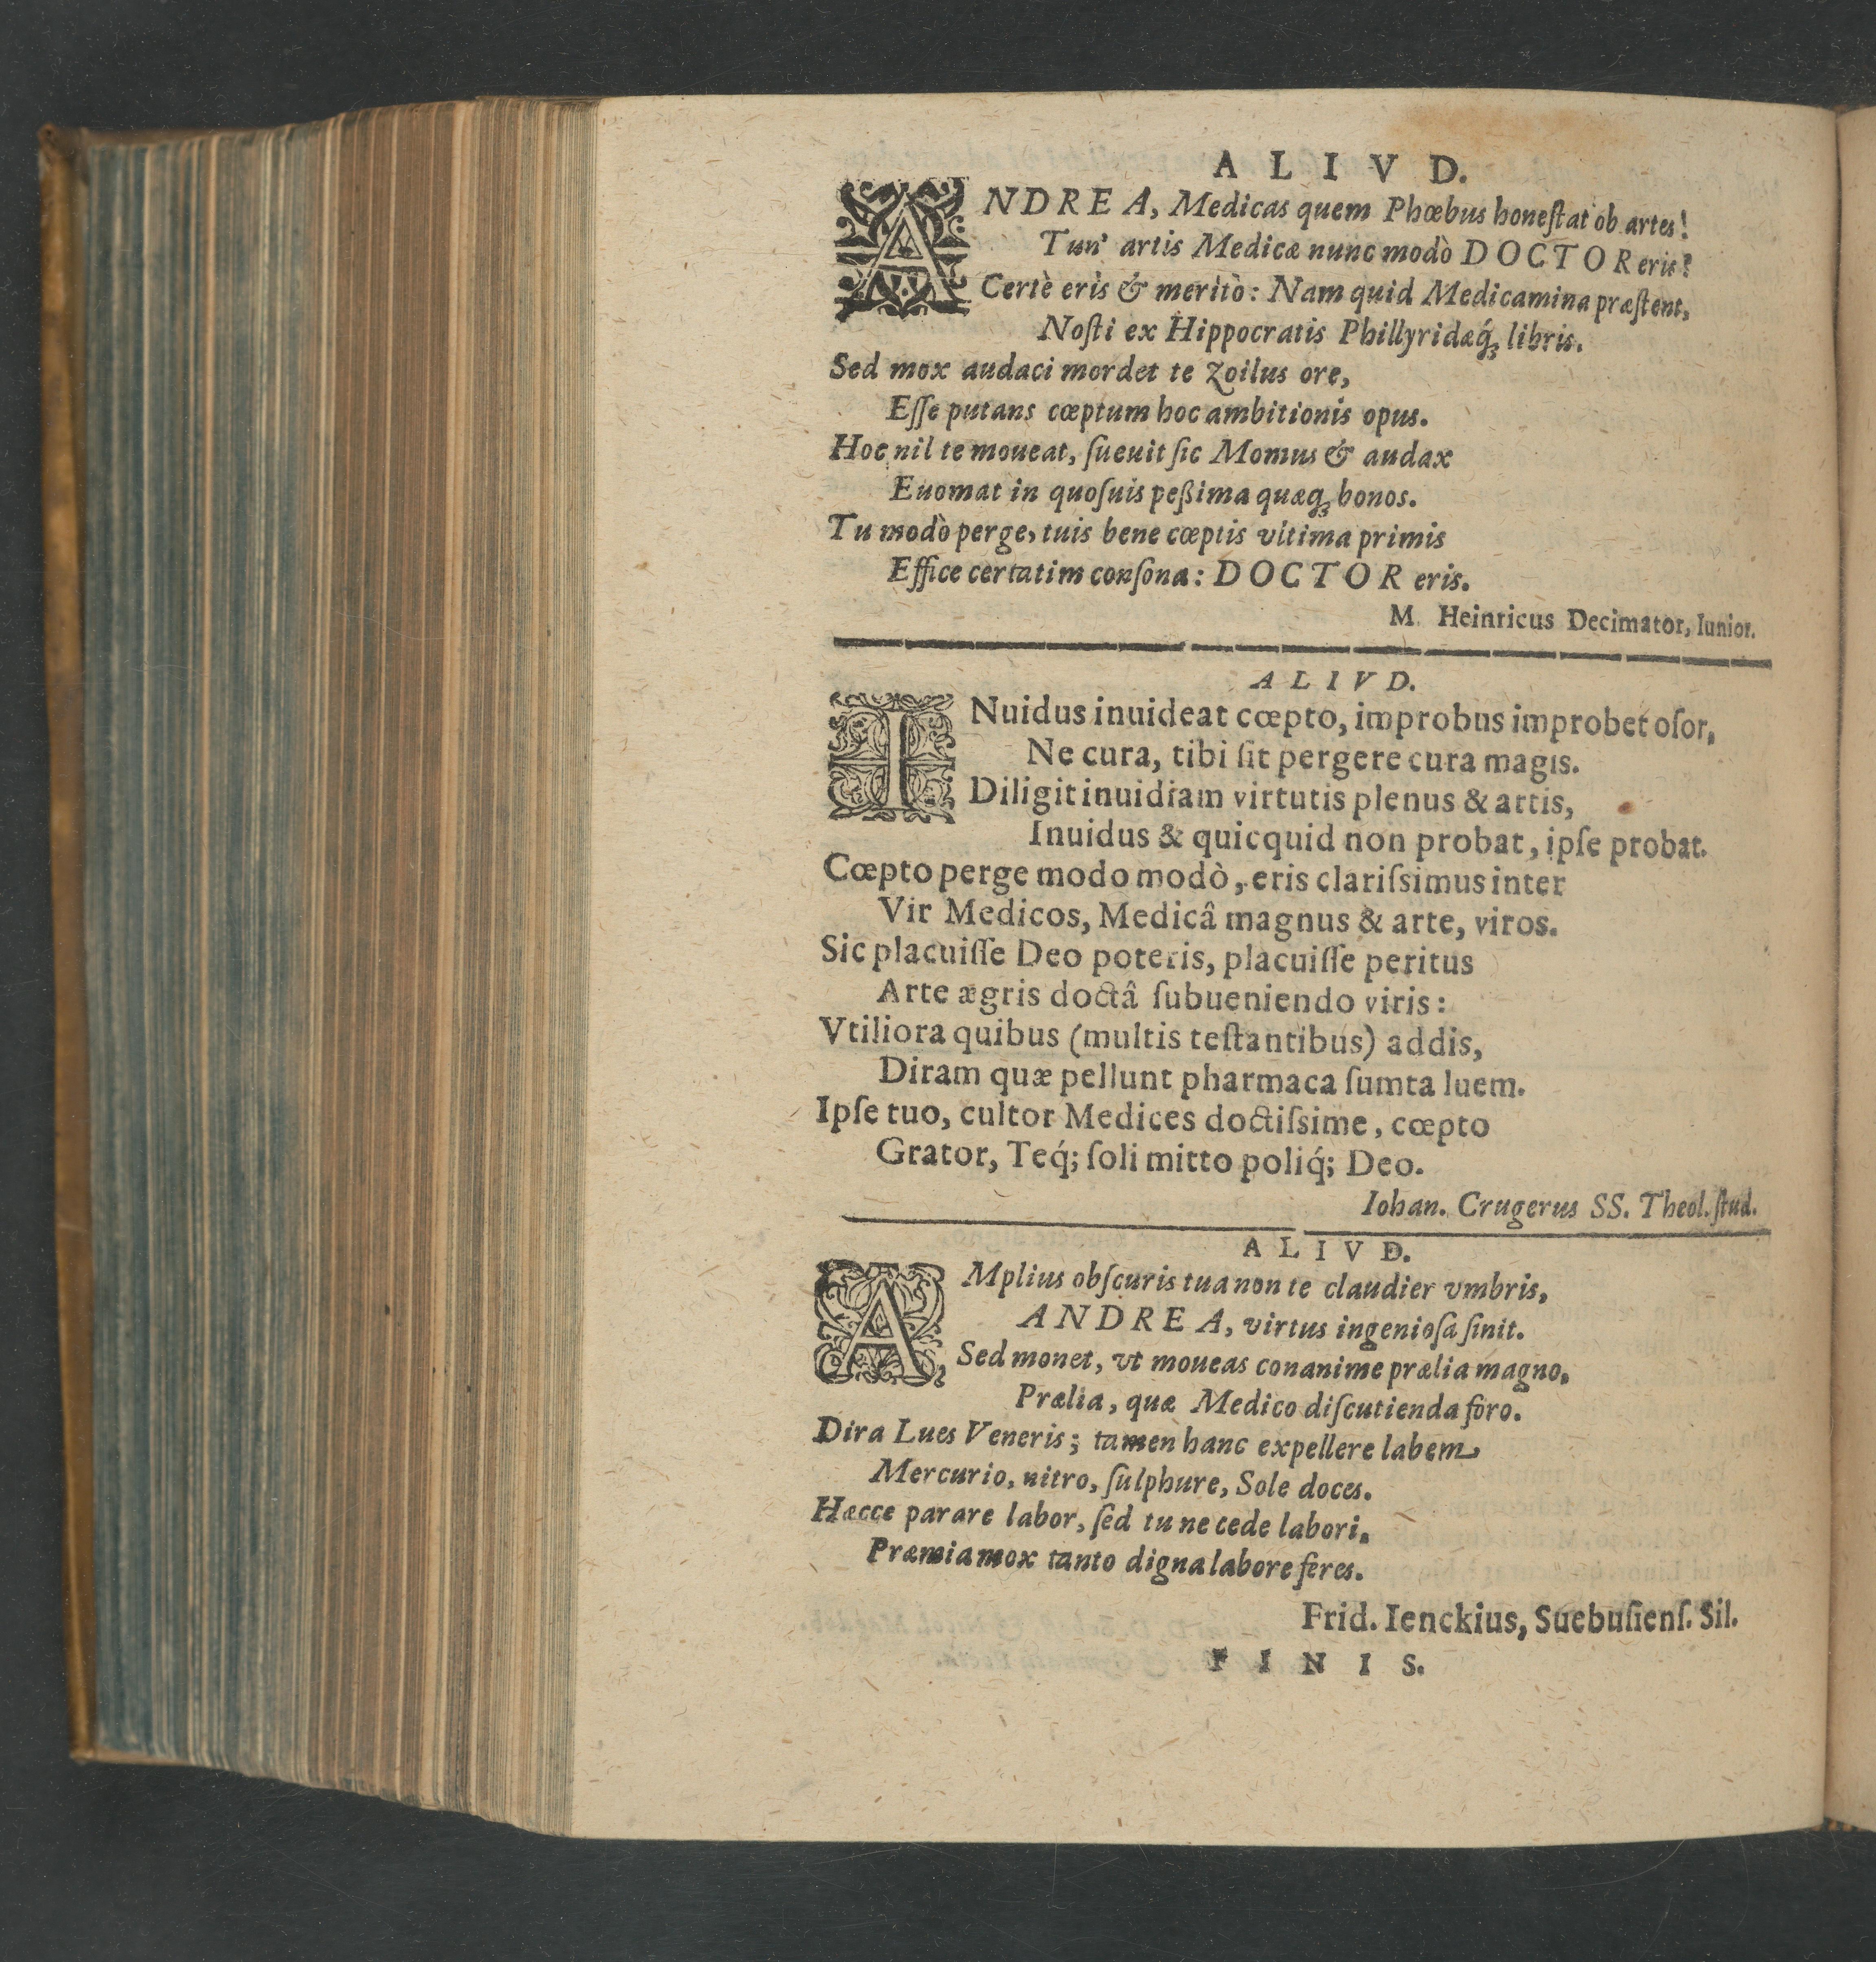 ALIVD.
ANDREA, Medicas quem Phœbus honeſtat ob artes!
Tun' artis Medicæ nunc modò DOCTOR eris?
Certè eris & meritò: Nam quid Medicamina præſtent,
Noſti ex Hippocratis Phillyridæq́ꝫ libris.
Sed mox audaci mordet te Zoilus ore,
Eſſe putans cœptum hoc ambitionis opus.
Hoc nil te moueat, ſueuit ſic Momus & audax
Euomat in quoſuis peßima quæqꝫ bonos.
Tu modò perge, tuis bene cœptis vltima primis
Effice certatim conſona: DOCTOR eris.
M. Heinricus Decimator, Iunior.
ALIVD.
INuidus inuideat cœpto, improbus improbet oſor,
Ne cura, tibi ſit pergere cura magis.
Diligit inuidiam virtutis plenus & artis,
Inuidus & quicquid non probat, ipſe probat.
Cœpto perge modo modò, eris clariſsimus inter
Vir Medicos, Medicâ magnus & arte, viros.
Sic placuiſſe Deo poteris, placuiſſe peritus
Arte ægris doctâ ſubueniendo viris:
Vtiliora quibus (multis teſtantibus) addis,
Diram quæ pellunt pharmaca ſumta luem.
Ipſe tuo, cultor Medices doctiſsime, cœpto
Grator, Teq́; ſoli mitto poliq́; Deo.
Iohan. Crugerus SS. Theol. ſtud.
ALIVD.
AMplius obſcuris tua non te claudier vmbris,
ANDREA, virtus ingenioſa ſinit.
Sed monet, vt moueas conanime prælia magno,
Prælia, quæ Medico diſcutienda foro.
Dira Lues Veneris; tamen hanc expellere labem
Mercurio, nitro, ſulphure, Sole doces.
Hæcce parare labor, ſed tu ne cede labori,
Præmia mox tanto digna labore feres.
Frid. Ienckius, Suebuſienſ. Sil.
FINIS.